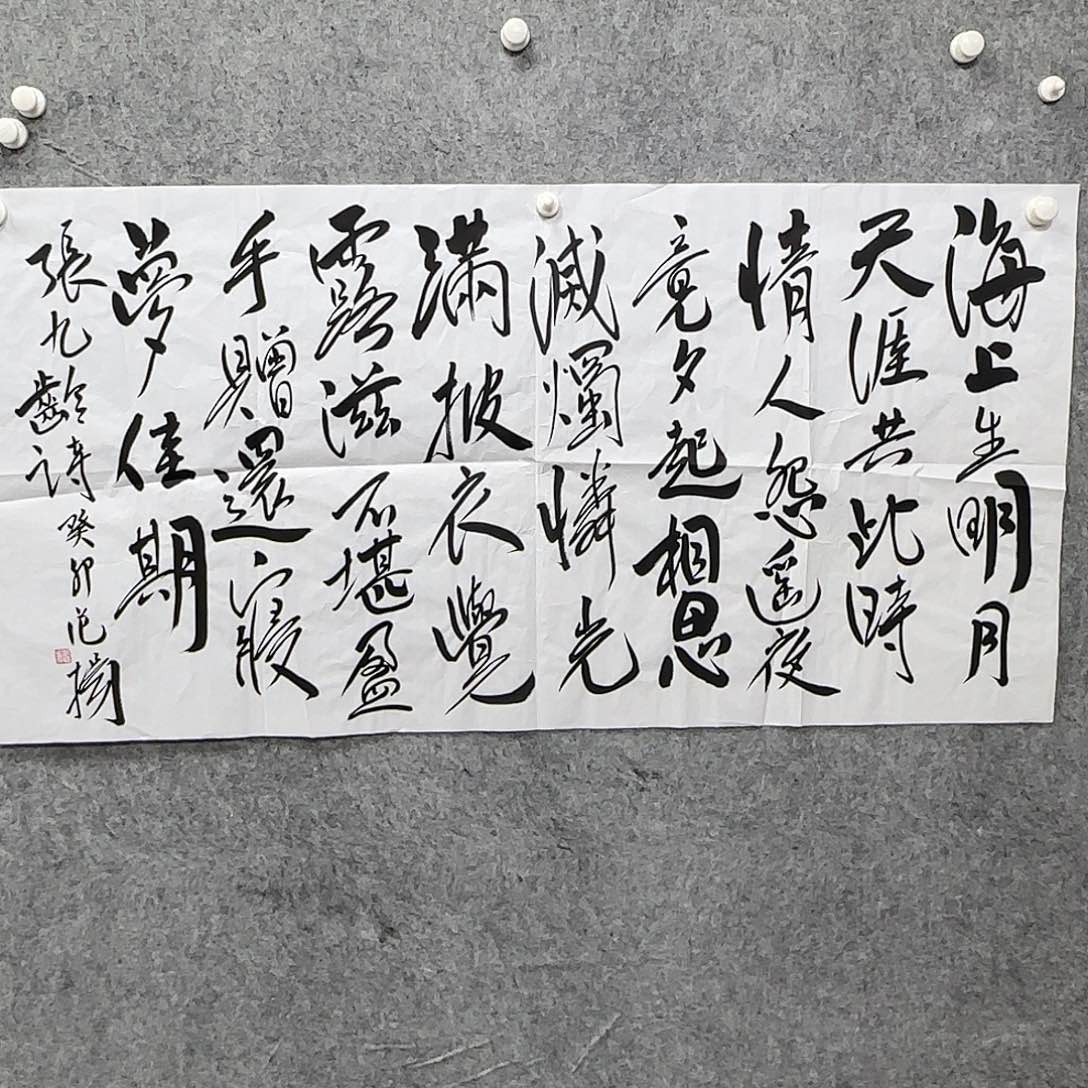 海上生明月
天涯共此時
情人怨遥夜
竟夕起相思
滅燭憐光
滿披衣覺
露滋不堪盈
手贈還寢
夢佳期
張九齡詩癸卯范